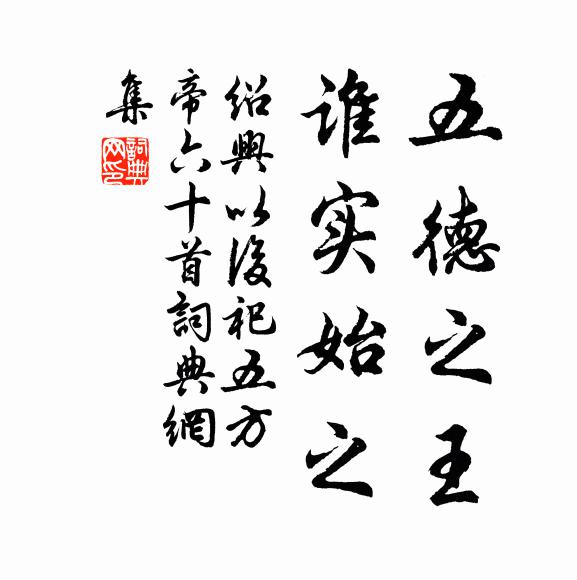 五德之王
谁实始之
紹興以後祀五方
帝六十首詞典網
集
詞典网印